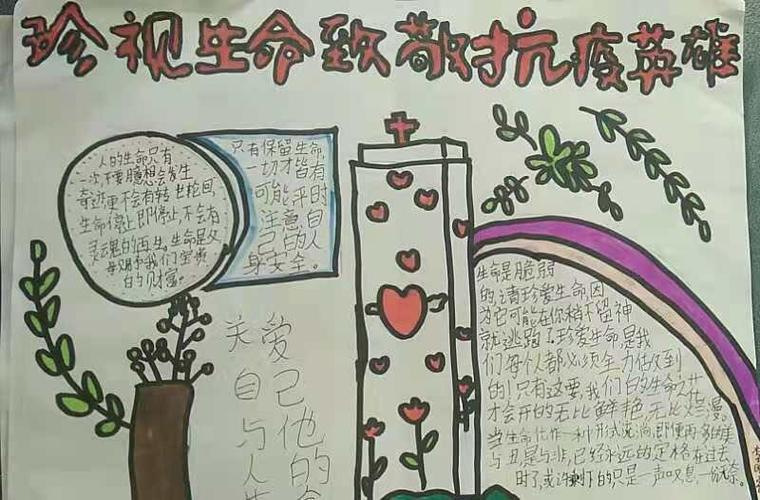 珍视生命致敬抗疫英雄
人的生命只有
一次,不要臆想会发生
奇迹更不会有转世轮回,
生命停止即停止,不会有
灵魂的再生。生命是父
母赐予我们宝贵
的财富。
只有保留生命,
一切才皆有
可能,平时
注意自
己的人
身安全。
关爱
自己
与他
人的
生命
生命是脆弱
的,请珍爱生命,因
为它可能在你稍不留神
就逃跑了,珍爱生命是我
们每个人都必须全力做到
的!只有这要,我们的生命之花
才会开的无比鲜艳,无比烂漫。
当生命化作一种形式流淌,即便再多的美
与丑,是与非,已经永远的定格在过去
时了,或许剩下的只是一声叹息,一份无奈。